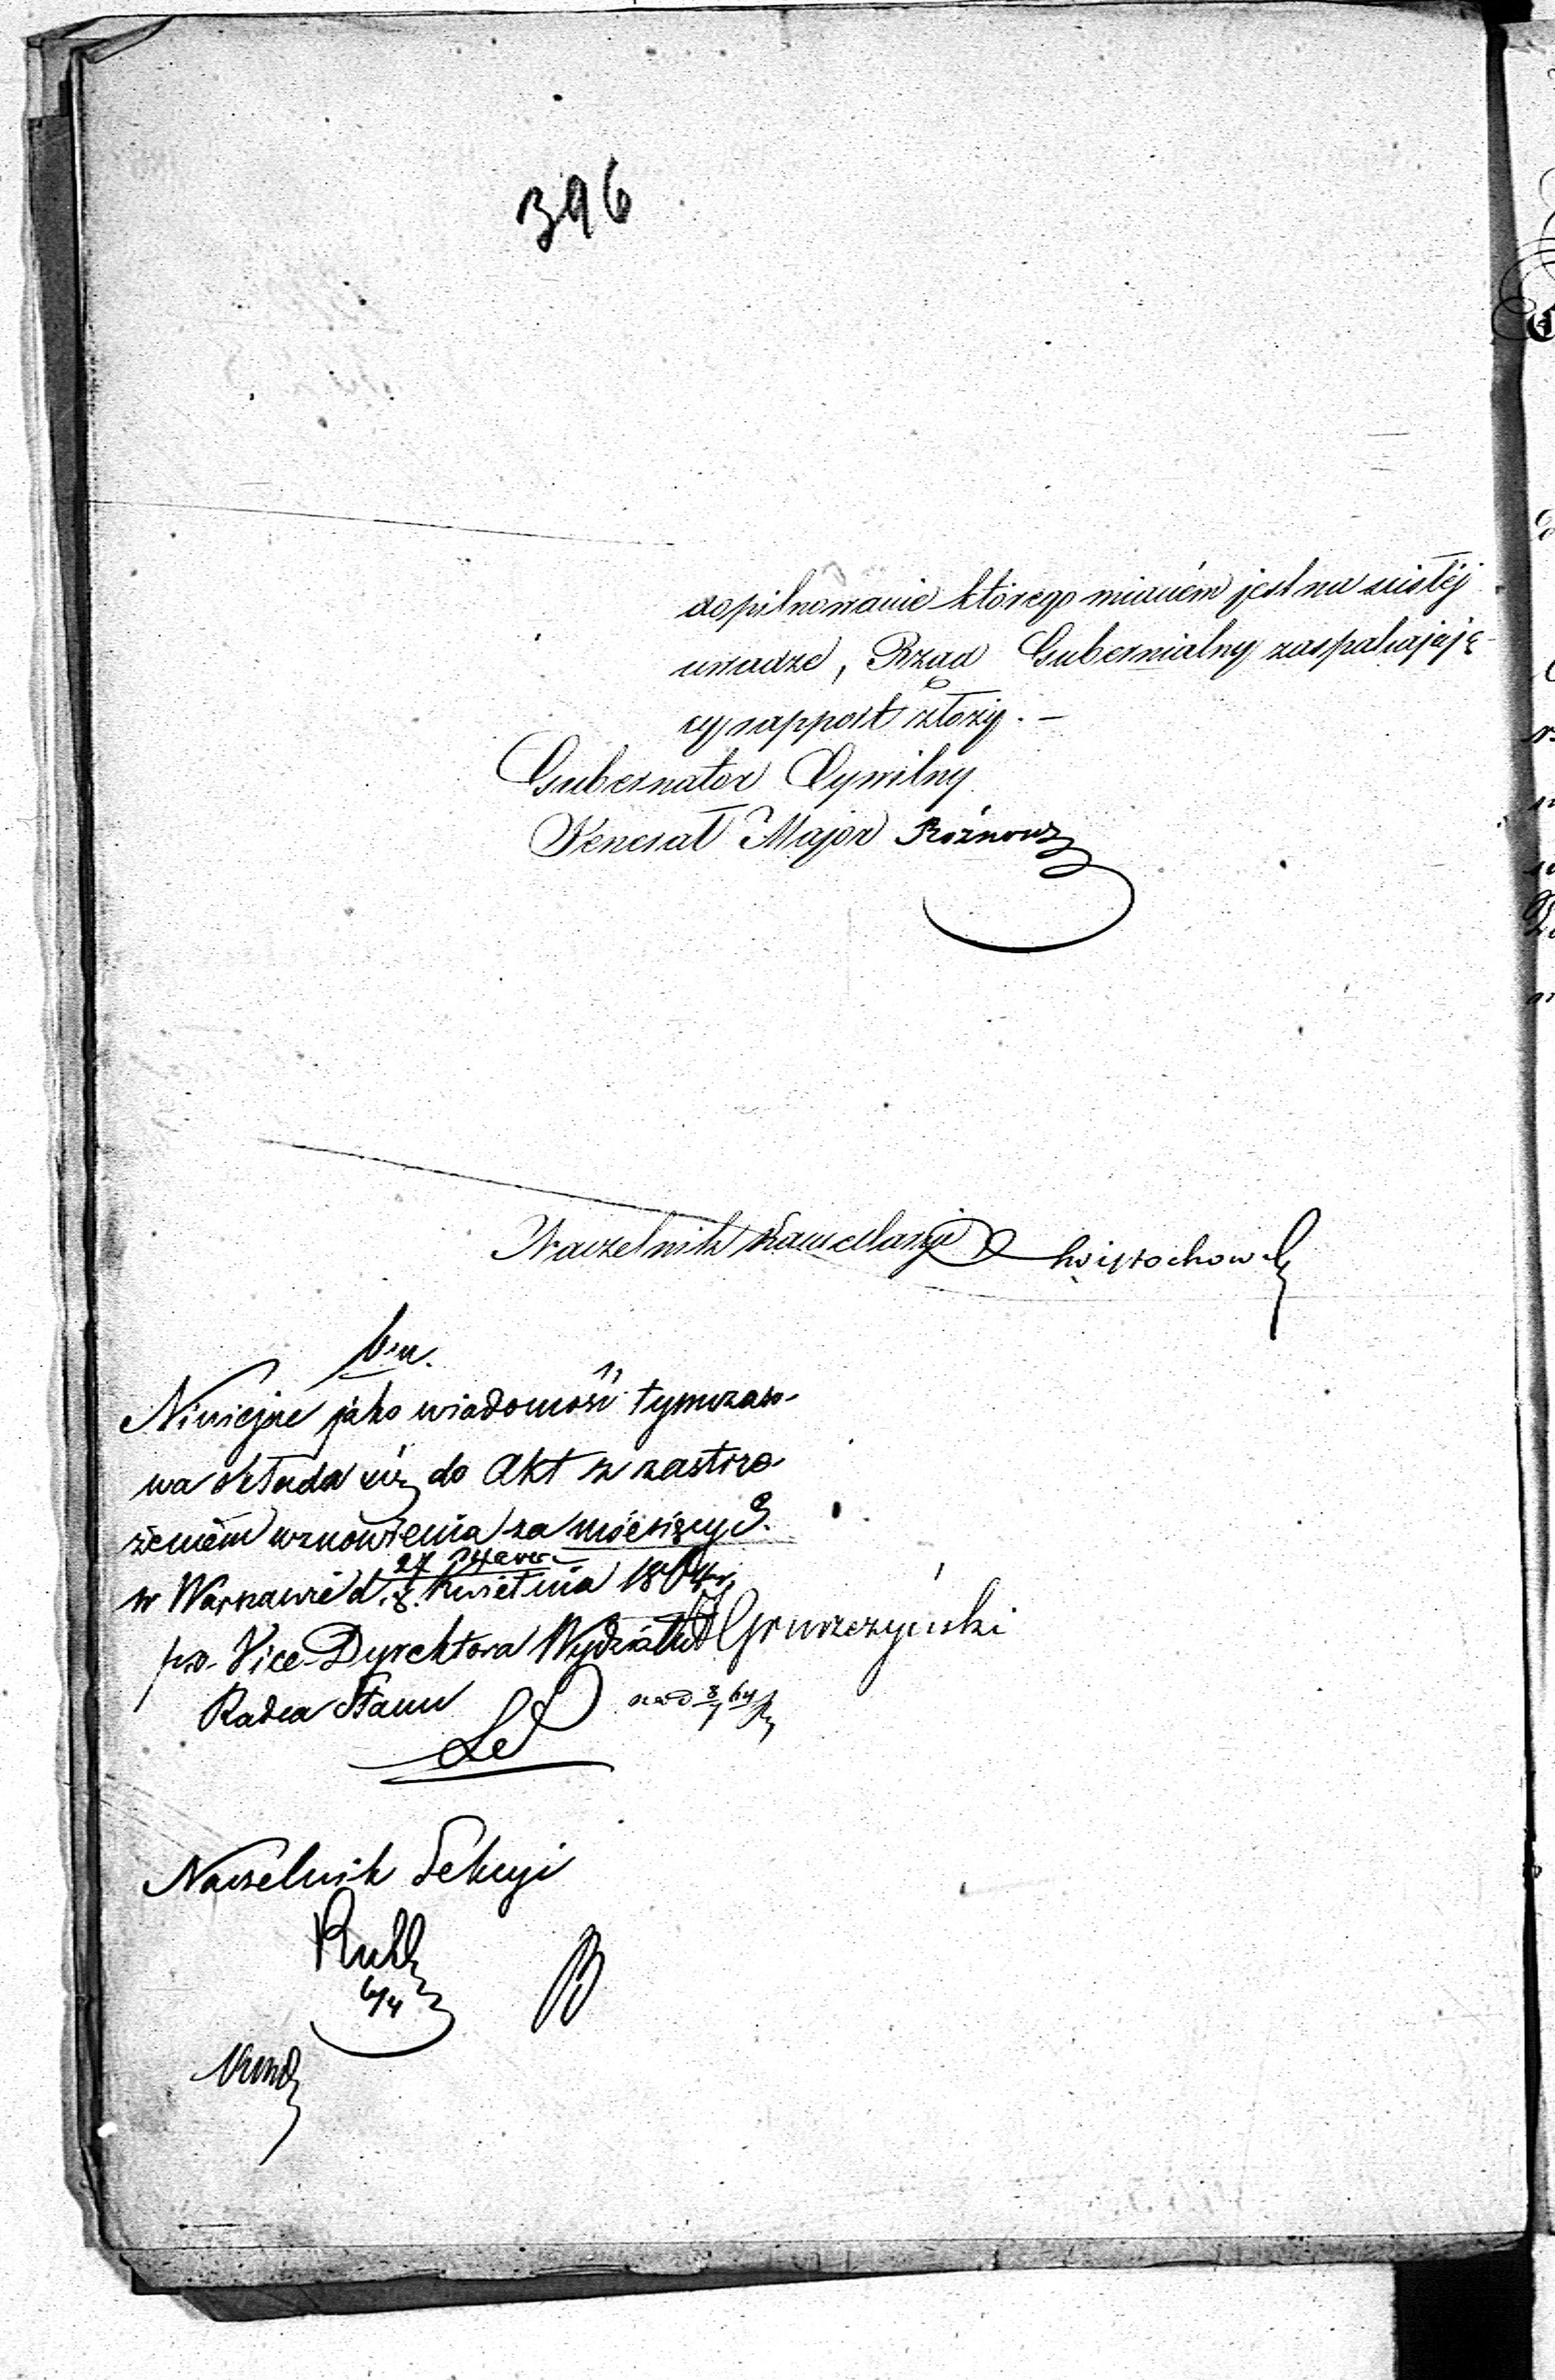 396
dopilnowanie którego mianém jest na ścisłéj
uwadze, Rząd Gubernialny zaspakajają-
cy rapport złoży. —
Gubernator Cywilny
Jenerał Major Rożnow
Naczelnik Kancellaryi
Niniejsze jako wiadomość tymczaso-
wa składa się do Akt z zastrze-
żeniem wznowienia za miesięcy 3.
27 Marca
w Warszawie d. 8. Kwietnia 1864 r.
p.o. Vice-Dyrektora Wydziału
Radca Stanu
Naczelnik Sekcyi
6/4